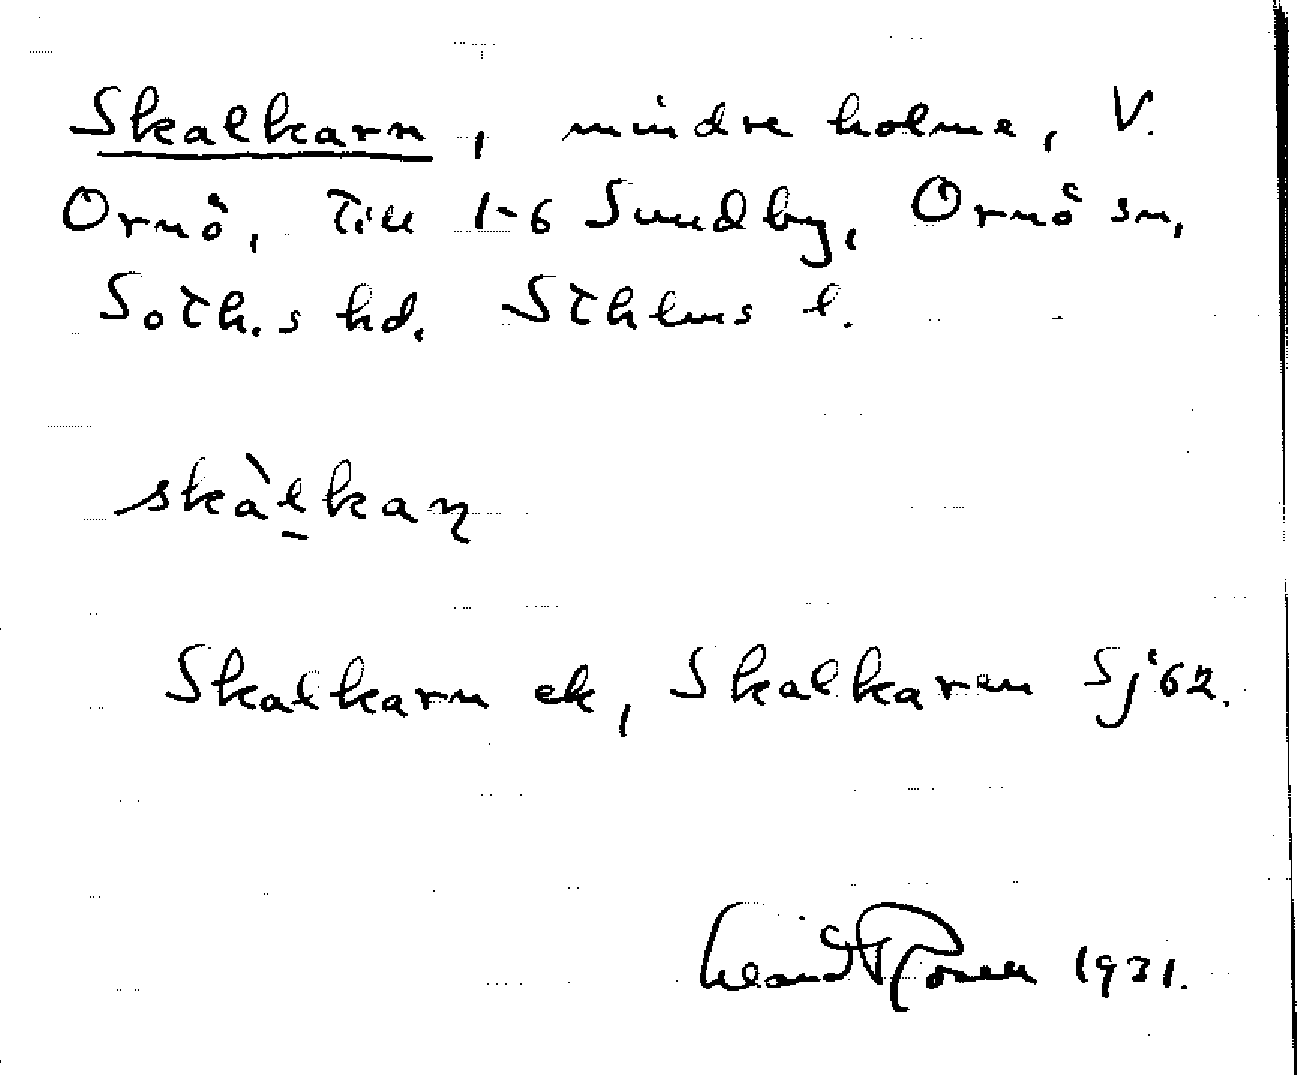 Skalkarn, mindre holme, V.
Ornö, till 1-6 Sundby, Ornö sn,
Soth.s hd. Sthlms l.
skàl̠kaɳ
Skalkarn ek, Skalkaren Sj'62.
1931.